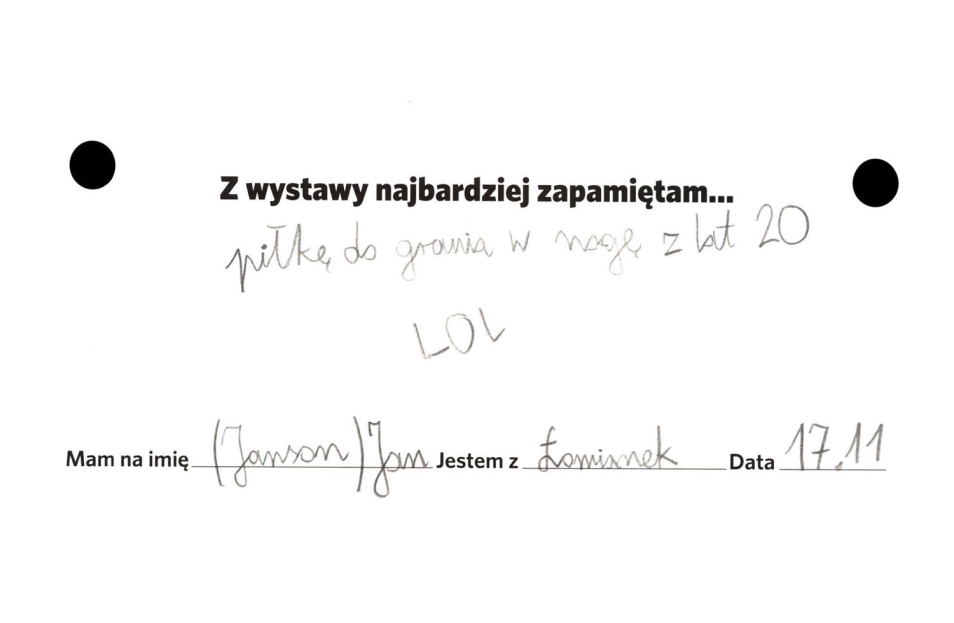 Z wystawy najbardziej zapamiętam...
piłkę do grania w nogę z lat 20
LOL
Mam na imię (Janson) Jan Jestem z Łomianek Data 17.11